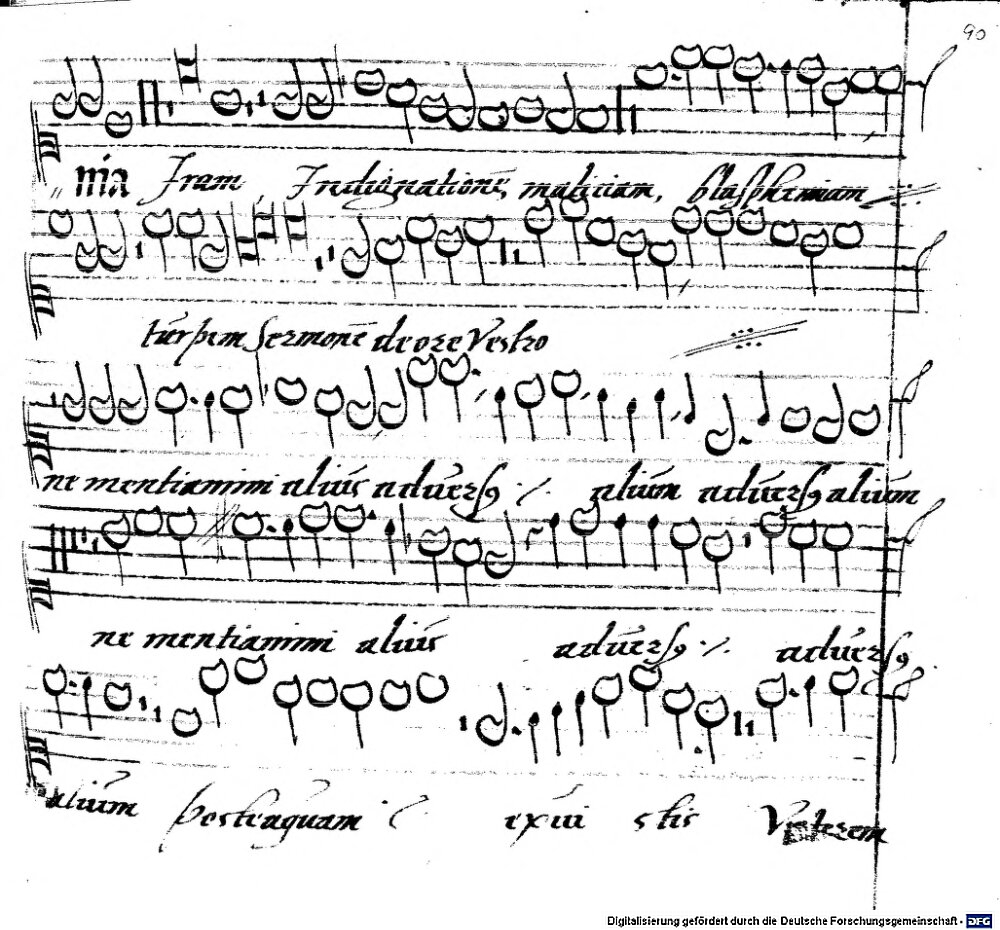 90
nia Iram, Indignationē, malitiam, blasphemiam
turpem sermonē de ore Vestro
ne mentiamini aliūs adūersꝯ ·/. aliūm adūersꝯ aliūm
ne mentiamini aliūs adūersꝯ ·/. adūersꝯ
aliūm postquam exūi stis Veterem
Digitalisierung gefördert durch die Deutsche Forschungsgemeinschaft - DFG